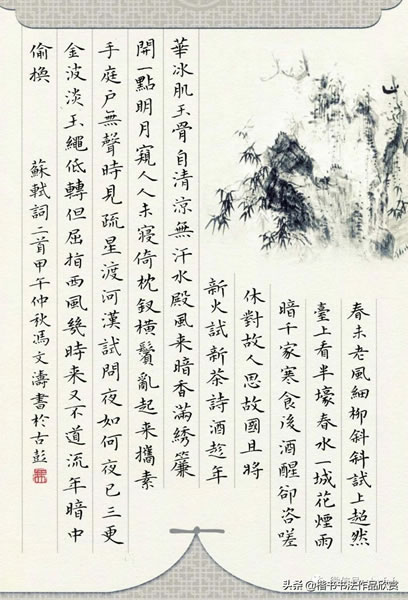 春未老風細柳斜斜試上超然
臺上看半壕春水一城花煙雨
暗千家寒食後酒醒卻咨嗟
休對故人思故國且將
新火試新茶詩酒趁年
華冰肌玉骨自清涼無汗水殿風来暗香滿繡簾
開一點明月窺人人未寢倚枕釵橫鬢亂起来攜素
手庭户無聲時見疏星渡河漢試問夜如何夜已三更
金波淡玉繩低轉但屈指西風幾時来又不道流年暗中
偷換
蘇軾詞二首甲午仲秋馮文濤書於古彭
头条@楷书书法作品欣赏